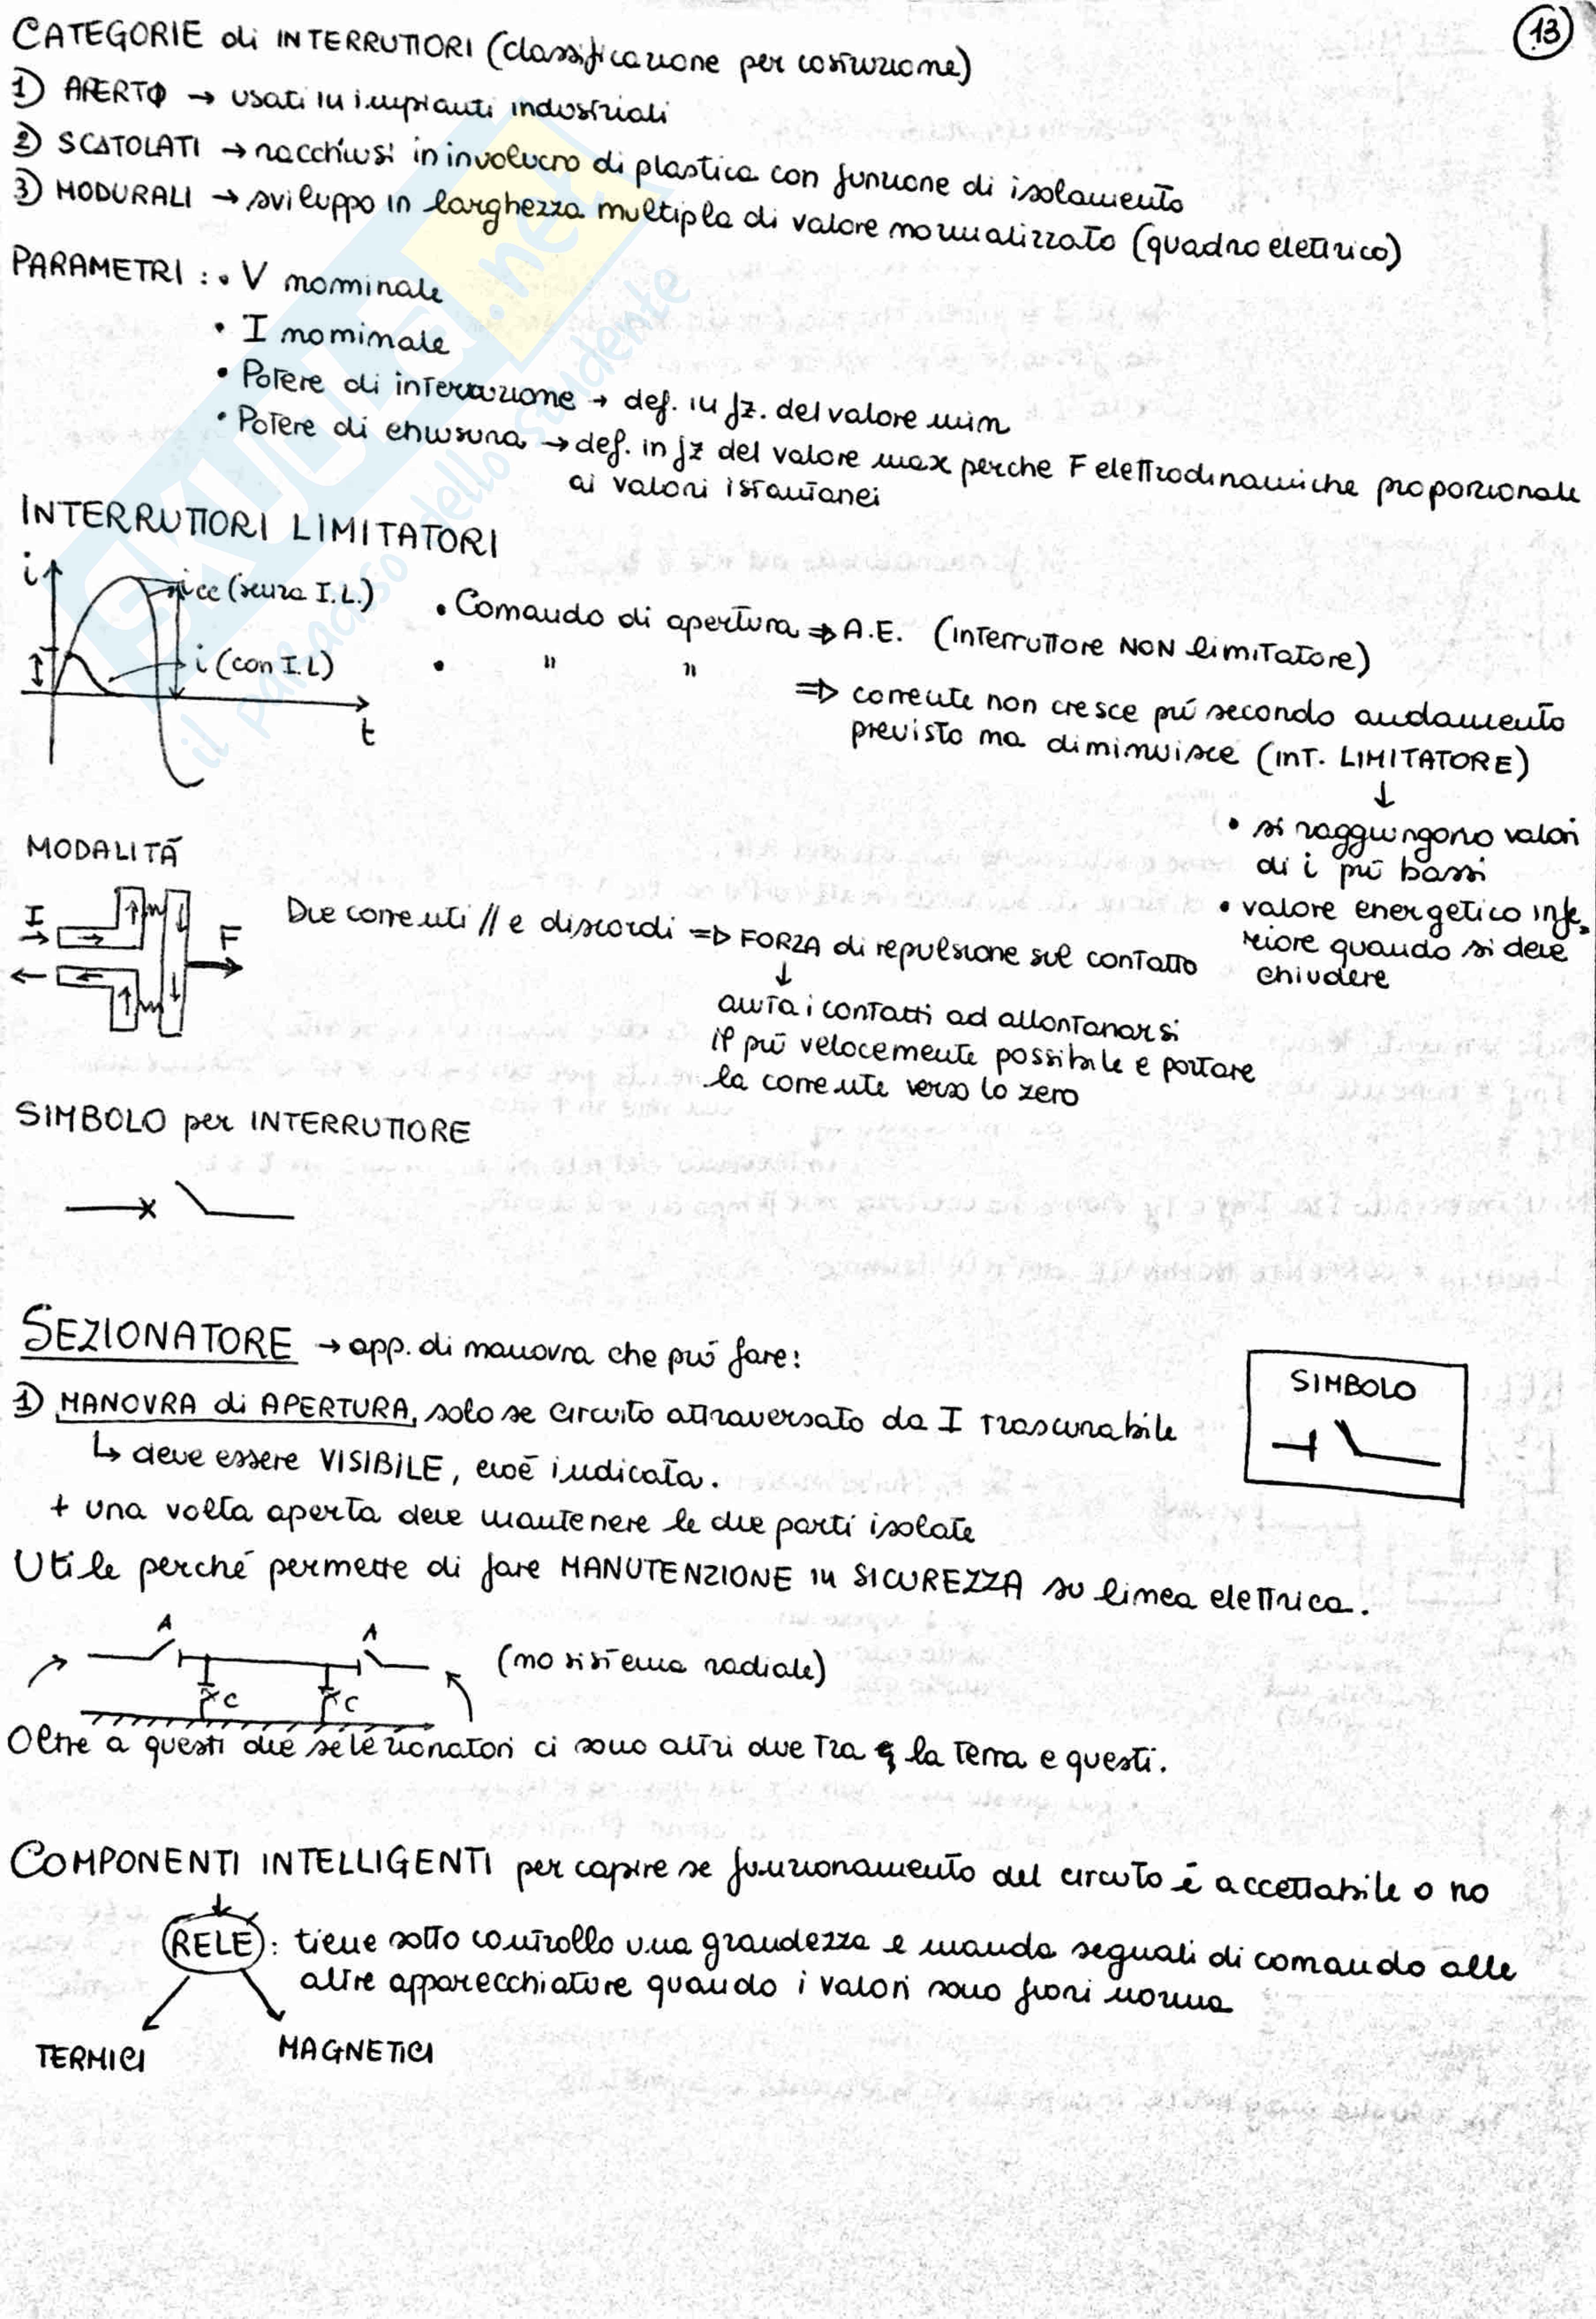 13
CATEGORIE di INTERRUTTORI (classificazione per costruzione)
1) APERTO → usati in impianti industriali
2) SCATOLATI → racchiusi in involucro di plastica con funzione di isolamento
3) MODURALI → sviluppo in larghezza multipla di valore normalizzato (quadro elettrico)
PARAMETRI : • V nominale
• I nominale
• Potere di interruzione → def. in fz. del valore
• Potere di chiusura → def. in fz del valore max perche F elettrodinamiche proporzionale
ai valori istantanei
INTERRUTTORI LIMITATORI
i
icc (senza I.L.)
i (con I.L)
I
t
• Comando di apertura ⇒ A.E. (interruttore NON limitatore)
• " "
⇒ corrente non cresce più secondo andamento
previsto ma diminuisce (INT. LIMITATORE)
↓
• si raggiungono valori
di i più bassi
• valore energetico infe-
riore quando si deve
chiudere
MODALITÀ
I
F
Due correnti // e discordi ⇒ FORZA di repulsione sul contatto
↓
aiuta i contatti ad allontanarsi
il più velocemente possibile e portare
la corrente verso lo zero
SIMBOLO per INTERRUTTORE
SEZIONATORE → app. di manovra che può fare:
SIMBOLO
1) MANOVRA di APERTURA, solo se circuito attraversato da I trascurabile
↳ deve essere VISIBILE, cioè indicata.
+ una volta aperta deve mantenere le due parti isolate
Utile perché permette di fare MANUTENZIONE in SICUREZZA su linea elettrica.
A
A
C
C
(no sistema radiale)
Oltre a questi due selezionatori ci sono altri due tra la terra e questi.
COMPONENTI INTELLIGENTI per capire se funzionamento del circuto è accettabile o no
RELE : tiene sotto controllo una grandezza e manda segnali di comando alle
altre apparecchiature quando i valori sono fuori norma
TERMICI
MAGNETICI
SKUOLA.net
il paradiso dello studente